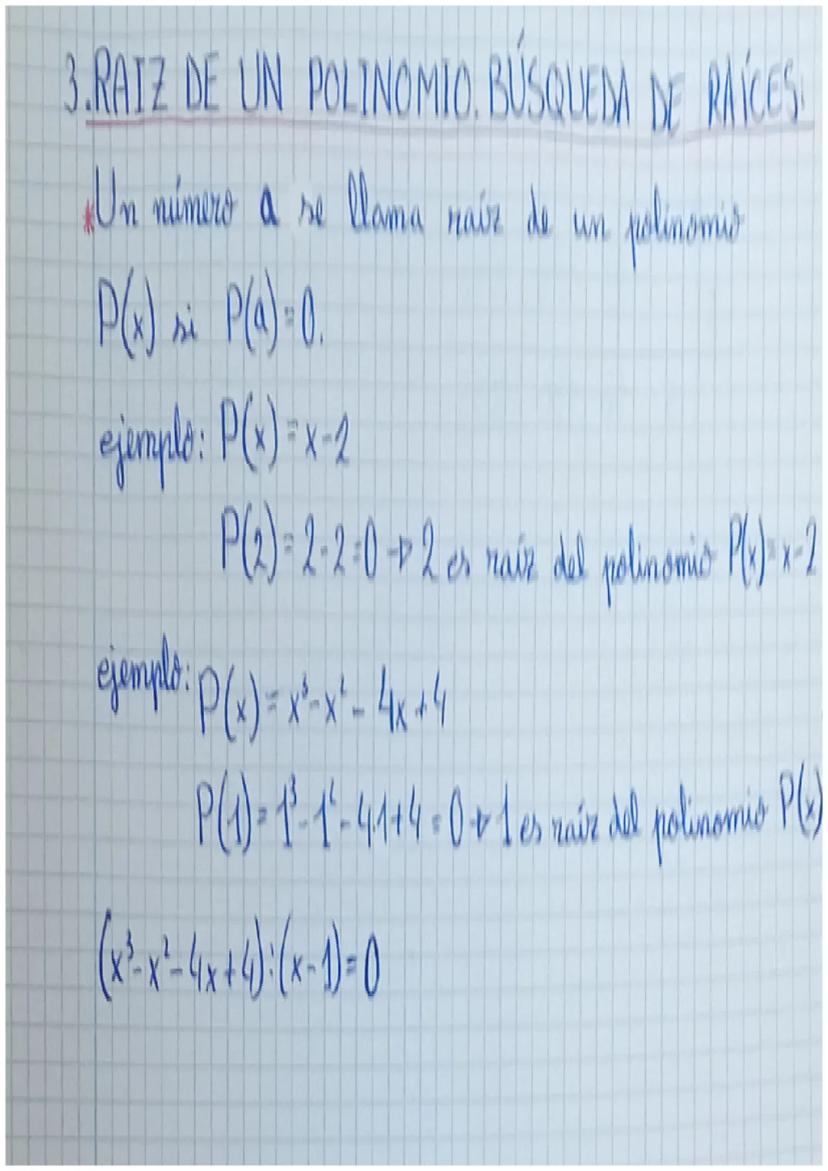 3. RAIZ DE UN POLINOMIO. BÚSQUEDA DE RAÍCES.
*Un número a se llama raíz de un polinomio
P(x) si P(a)=0.
ejemplo: P(x)=x-2
P(2)=2-2=0→2 es raíz del polinomio P(x)=x-2
ejemplo: P(x)=x³-x²-4x+4
P(1)=1³-1²-4·1+4=0→1 es raíz del polinomio P(x)
(x³-x²-4x+4):(x-1)=0